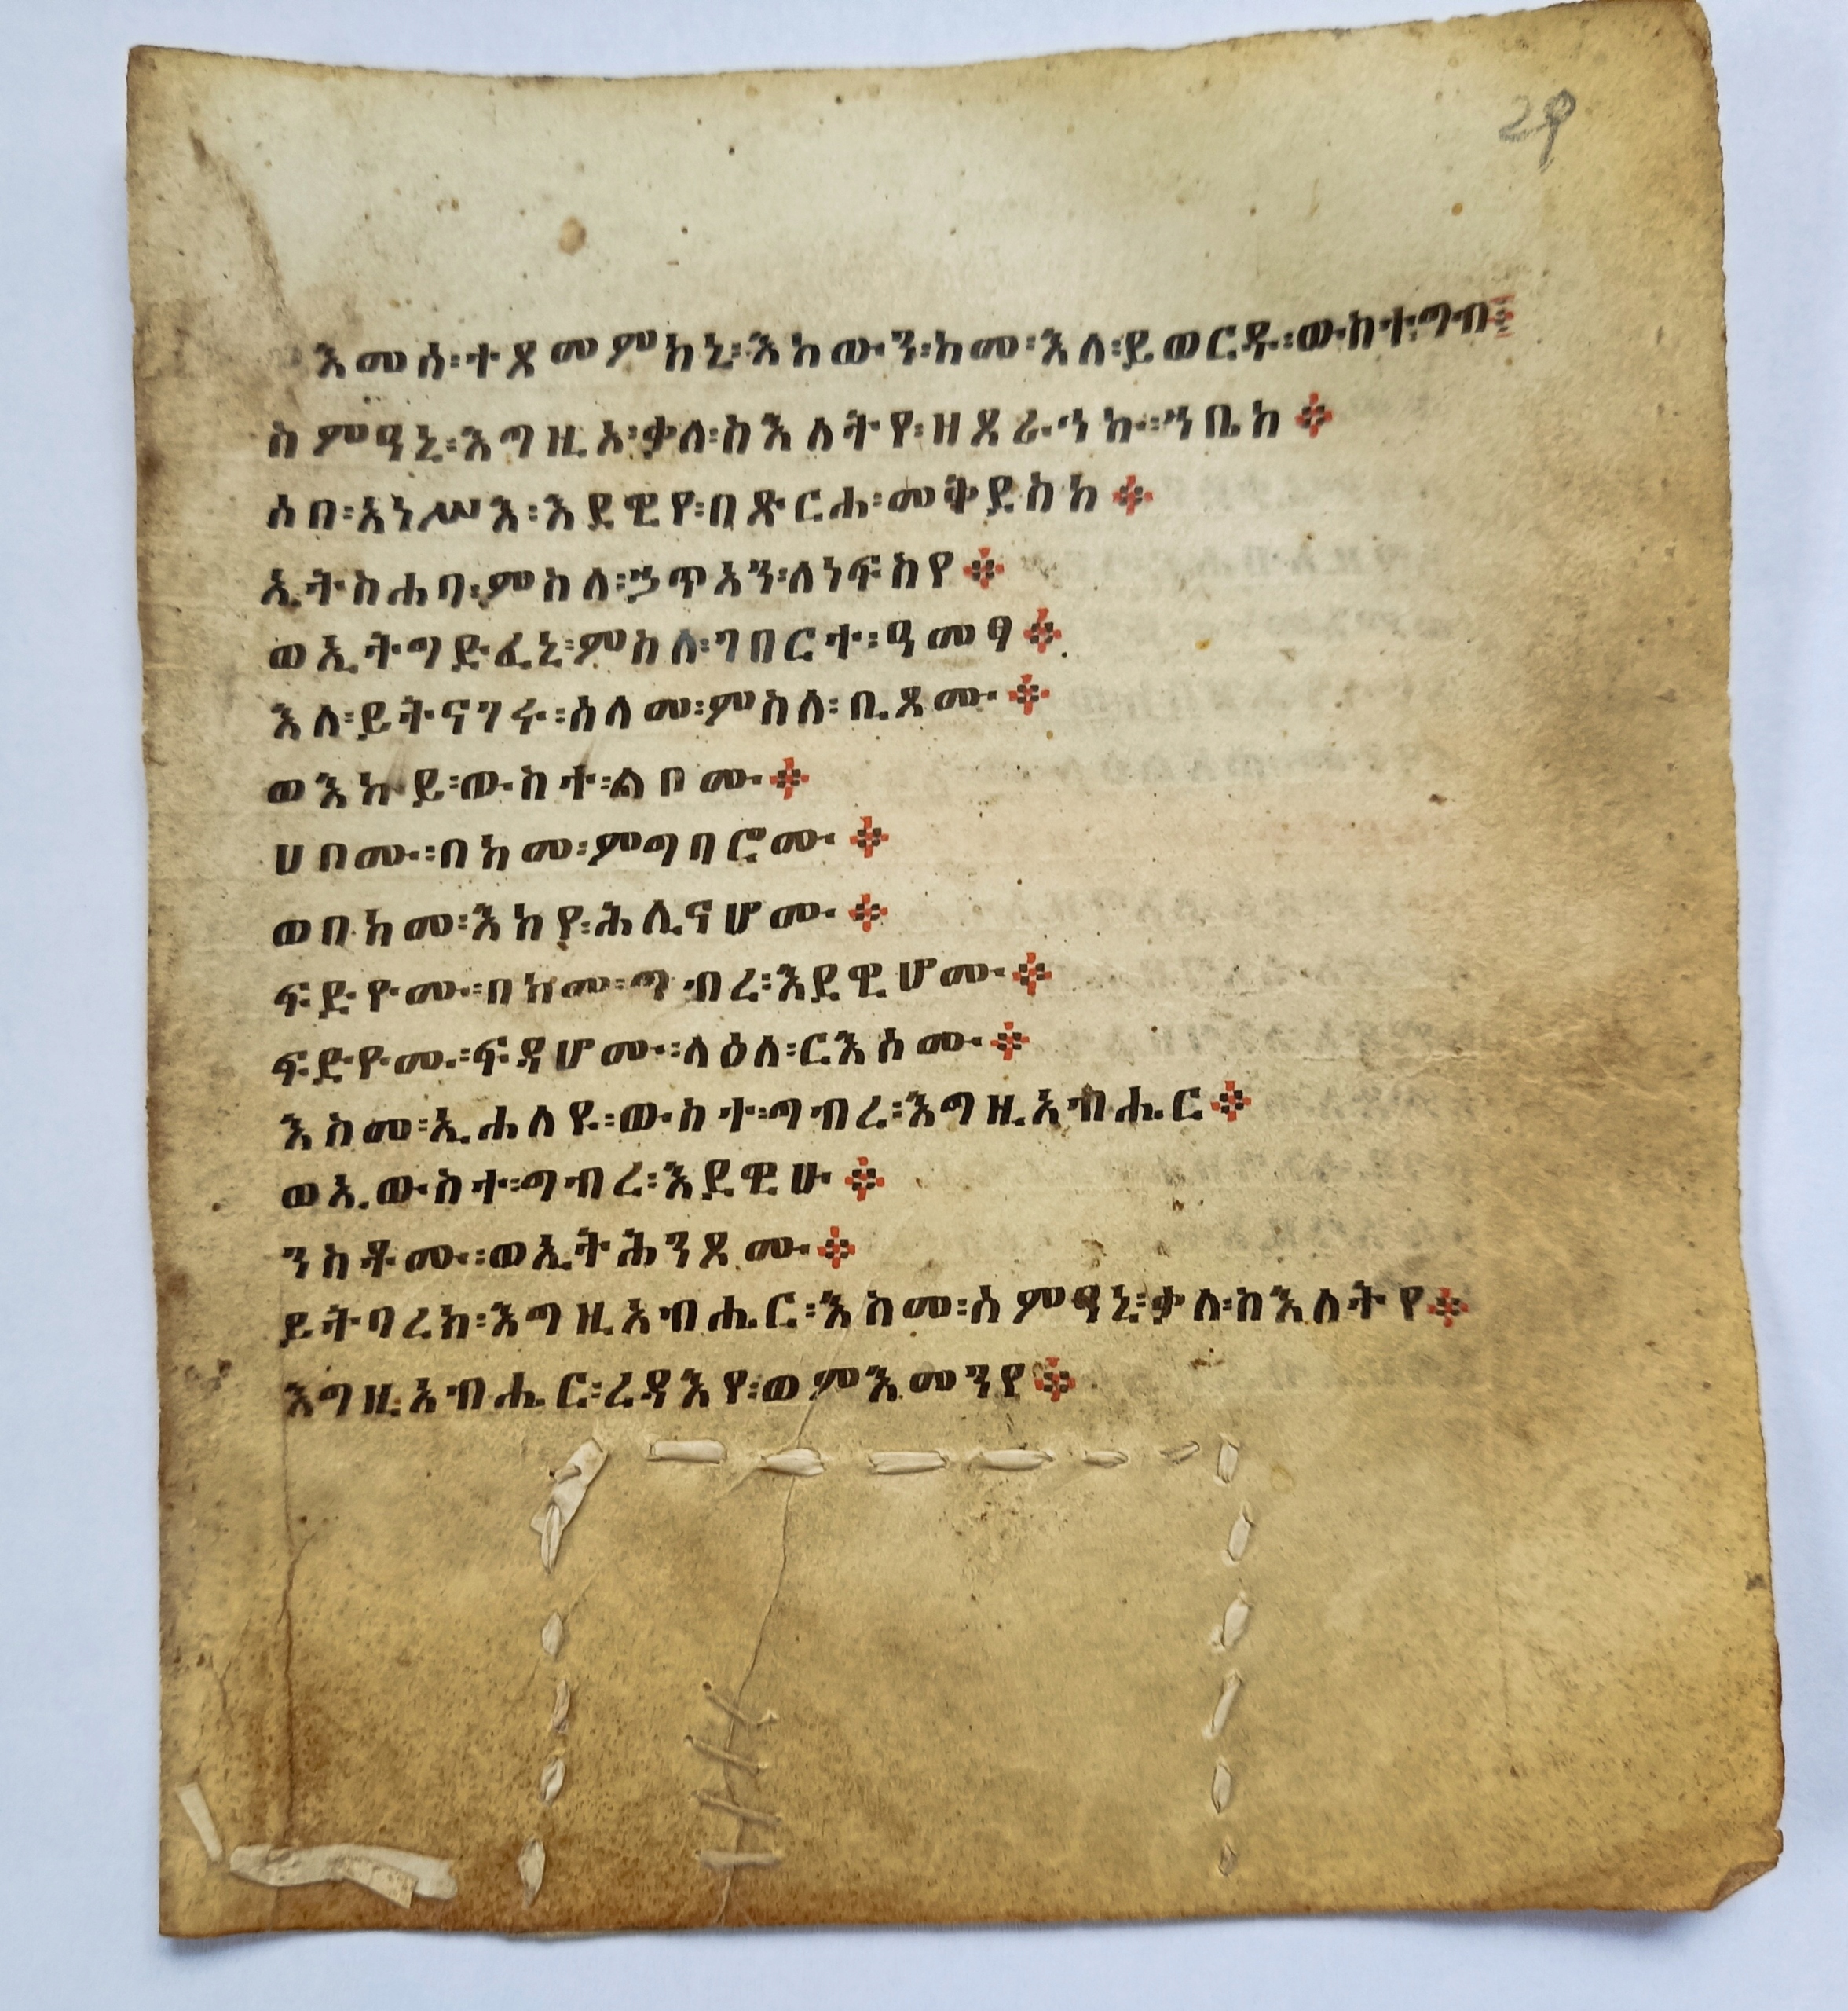 29
እመሰ፡ተጸመምከኒ፡እከውን፡ከመ፡እለ፡ይወርዱ፡ውስተ፡ግብ፨
ስምዓኒ፡እግዚአ፡ቃለ፡ስእለትየ፡ዘጸራኅኩ፡ኀቤከ፨
ሶበ፡አነሥእ፡እደዊየ፡በጽርሐ፡መቅደስከ፨
ኢትስሐባ፡ምስለ፡ኃጥአን፡ለነፍስየ፨
ወኢትግድፈኒ፡ምስለ፡ገበርተ፡ዓመፃ፨
እለ፡ይትናገሩ፡ሰላመ፡ምስለ፡ቢጾሙ፨
ወእኩይ፡ውስተ፡ልቦሙ፨
ሀቦሙ፡በከመ፡ምግባሮሙ፨
ወበከመ፡እከየ፡ሕሊናሆሙ፨
ፍድዮሙ፡በከመ፡ግብረ፡እደዊሆሙ፨
ፍድዮሙ፡ፍዳሆሙ፡ላዕለ፡ርእሶሙ፨
እስመ፡ኢሐለዩ፡ውስተ፡ግብረ፡እግዚአብሔር፨
ወኢውስተ፡ግብረ፡እደዊሁ፨
ንስቶሙ፡ወኢትሕንጾሙ፨
ይትባረክ፡እግዚአብሔር፡እስመ፡ሰምዓኒ፡ቃለ፡ስእለትየ፨
እግዚአብሔር፡ረዳእየ፡ወምእመንየ፨